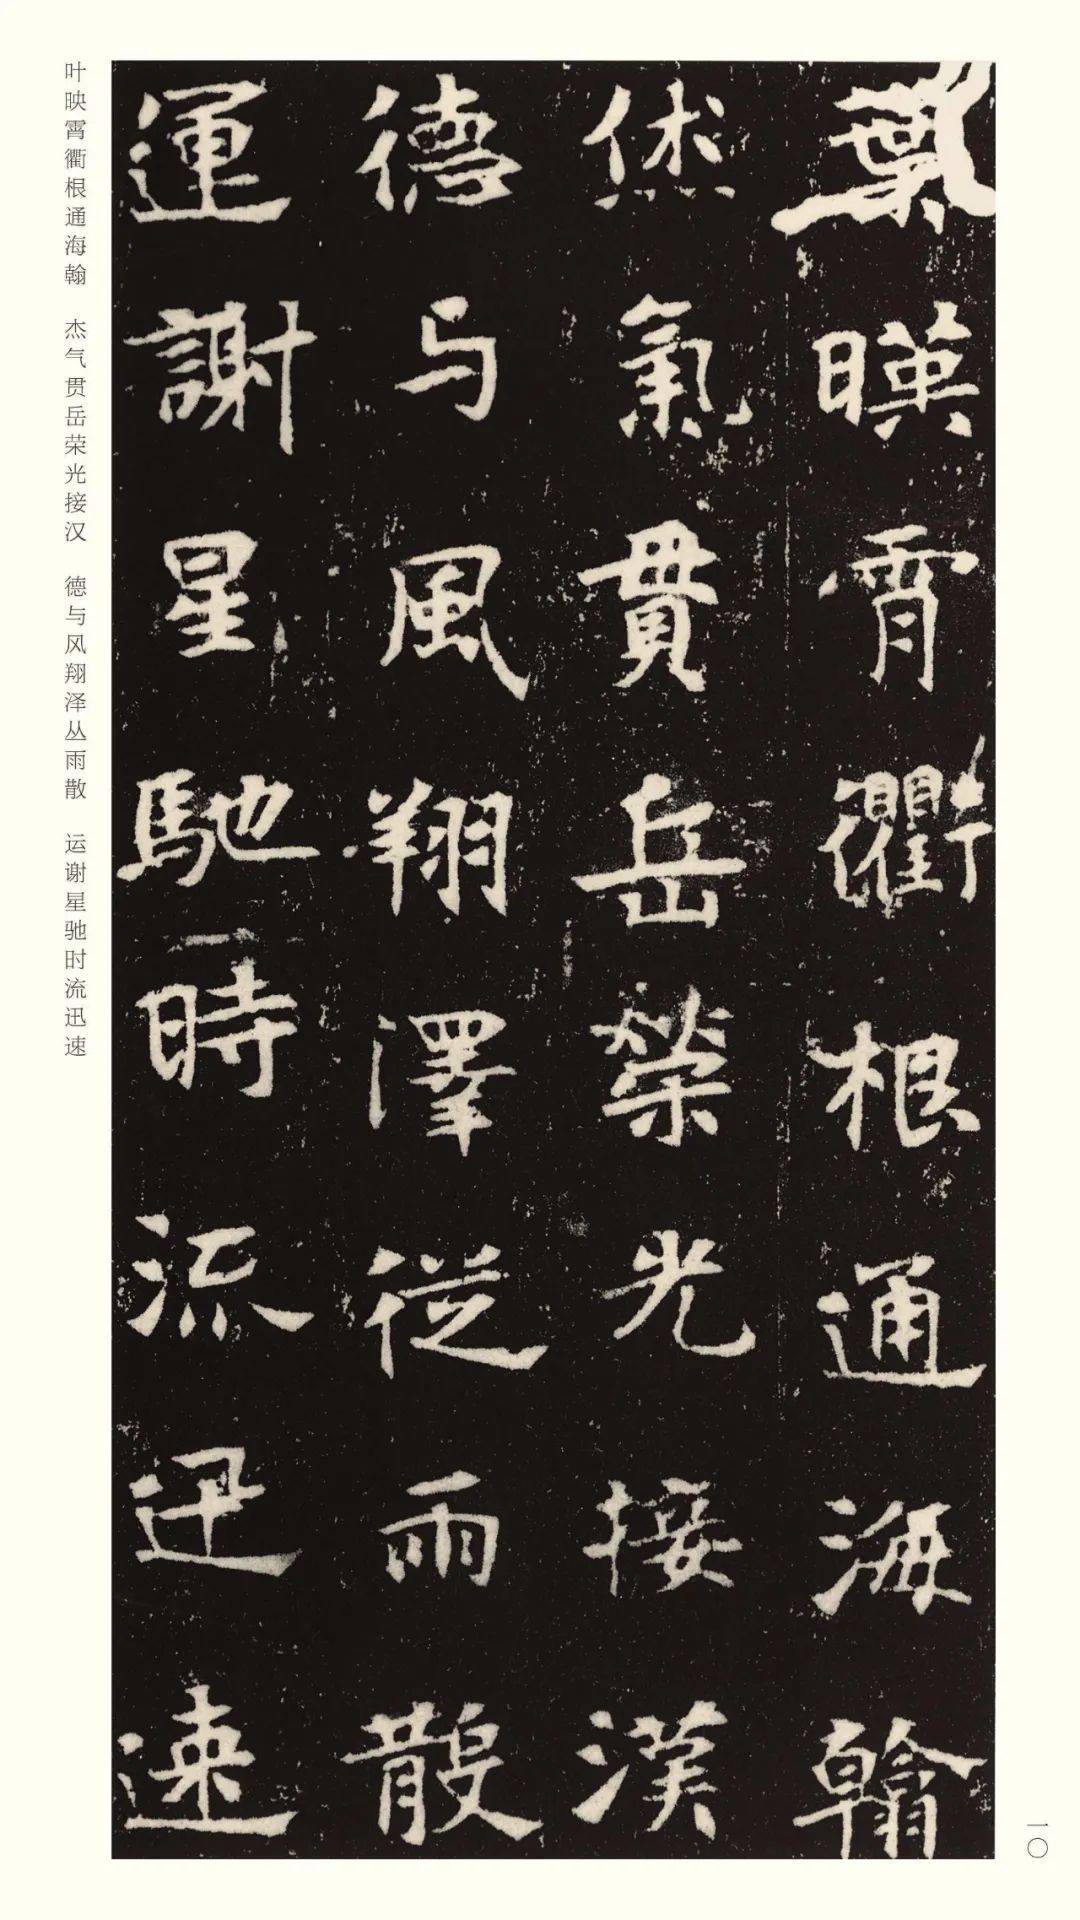 葉暎霄衢根通海翰
㑛氣貫岳榮光接漢
德与風翔澤從雨散
運謝星馳時流迅速
叶映霄衢根通海翰 杰气贯岳荣光接汉 德与风翔泽丛雨散 运谢星驰时流迅速
一〇